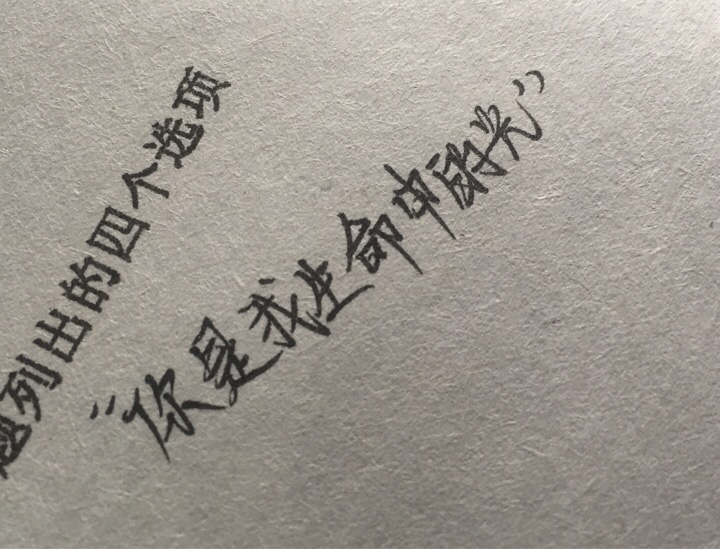 题列出的四个选项
“你是我生命中的时光”